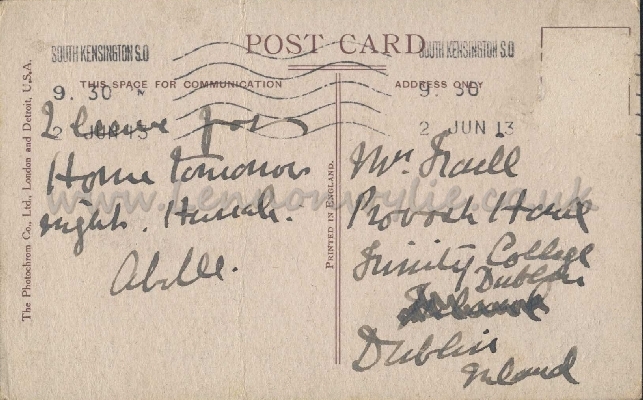 POST CARD
SOUTH KENSINGTON S.O
9. 30
2 JUN 13
SOUTH KENSINGTON S.O
9. 30
2 JUN 13
THIS SPACE FOR COMMUNICATION
ADDRESS ONLY
I leave for
Home tomorrow
night. Hurrah.
Mr. Traill
Provosts House
Trinity College
Dublin
Dublin
Ireland
PRINTED IN ENGLAND.
The Photochrom Co., Ltd., London and Detroit, U.S.A.
www.lennonwylie.co.uk